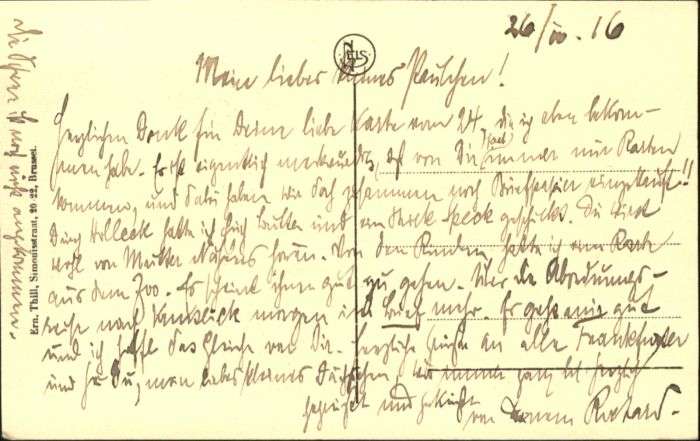 26/III.16
Mein liebes kleines Paulchen!
Herzlichen Dank für Deine liebe Karte vom 24., die ich eben bekom-
men habe. Es ist eigentlich merkwürdig, daß von Dir immer nur Karten
kommen, und dabei haben wir doch zusammen noch Briefpapier eingekauft!!
Durch hatte ich Euch Butter und ein Stück Speck geschickt. Du wirst
wohl von Mutter Näheres hören. Von den Kindern hatte ich eine Karte
aus dem Zoo. Es scheint ihnen gut zu gehen. Vor der Abordnungs-
reise nach morgen Brief mehr. Es geht mir gut
und ich hoffe das Gleiche von Dir. Herzliche Grüße an alle Frankfurter
und Du, mein liebes kleines, wie immer ganz herzlich
gegrüßt und geküßt
von Deinem Richard.
ist noch nicht angekommen.
Ern. Thill, Simonisstraat, 20-22, Brussel.
NELS